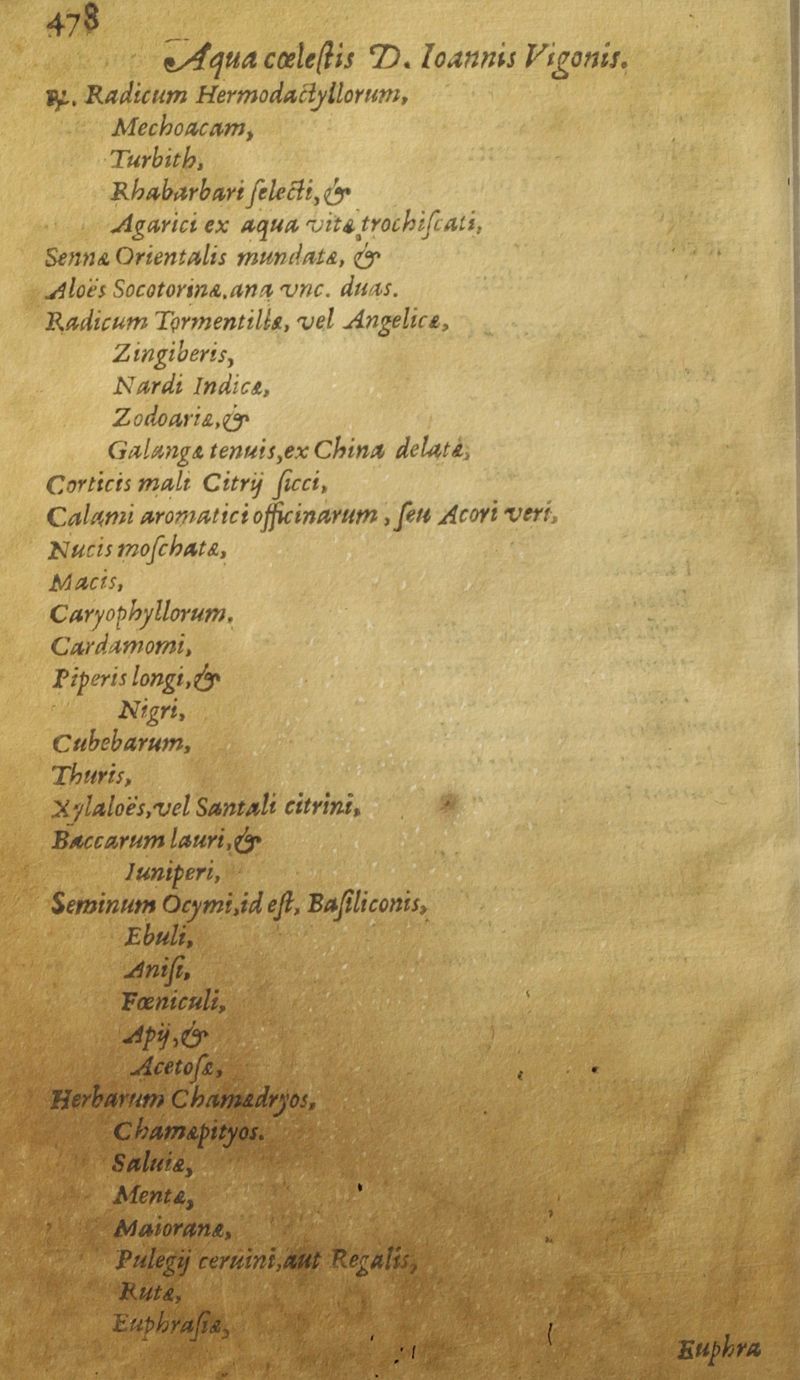 478
Aqua cœleſtis D. Ioannis Vigonis.
℞. Radicum Hermodactyllorum,
Mechoacam,
Turbith,
Rhabarbari ſelecti, &
Agarici ex aqua vitæ trochiſcati,
Sennæ Orientalis mundatæ, &
Aloës Socotorinæ. ana vnc. duas.
Radicum Tormentillæ, vel Angelicæ,
Zingiberis,
Nardi Indicæ,
Zodoariæ, &
Galangæ tenuis, ex China delatæ,
Corticis mali Citrij ſicci,
Calami aromatici officinarum, ſeu Acori veri,
Nucis moſchatæ,
Macis,
Caryophyllorum.
Cardamomi,
Piperis longi, &
Nigri,
Cubebarum,
Thuris,
Xylaloës, vel Santali citrini,
Baccarum lauri, &
Iuniperi,
Seminum Ocymi, id eſt, Baſiliconis,
Ebuli,
Aniſi,
Fœniculi,
Apij, &
Acetoſæ,
Herbarum Chamædryos,
Chamæpityos.
Saluiæ,
Mentæ,
Maioranæ,
Pulegij ceruini, aut Regalis,
Rutæ,
Euphraſiæ,
Euphra